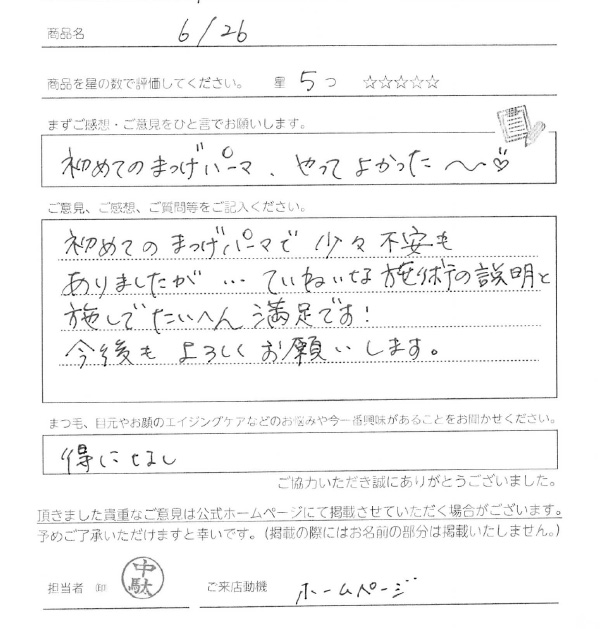 商品名 6/26
商品を星の数で評価してください。 星 5 つ ☆☆☆☆☆
まずご感想・ご意見をひと言でお願いします。
初めてのまつげパーマ、やってよかった〜♡
ご意見、ご感想、ご質問等をご記入ください。
初めてのまつげパーマで少々不安も
ありましたが…ていねいな施術の説明と
施しでたいへん満足です!
今後もよろしくお願いします。
まつ毛、目元やお顔のエイジングケアなどのお悩みや今一番興味があることをお聞かせください。
得になし
ご協力いただき誠にありがとうございました。
頂きました貴重なご意見は公式ホームページにて掲載させていただく場合がございます。
予めご了承いただけますと幸いです。(掲載の際にはお名前の部分は掲載いたしません。)
担当者 ㊞ 中駄 ご来店動機 ホームページ